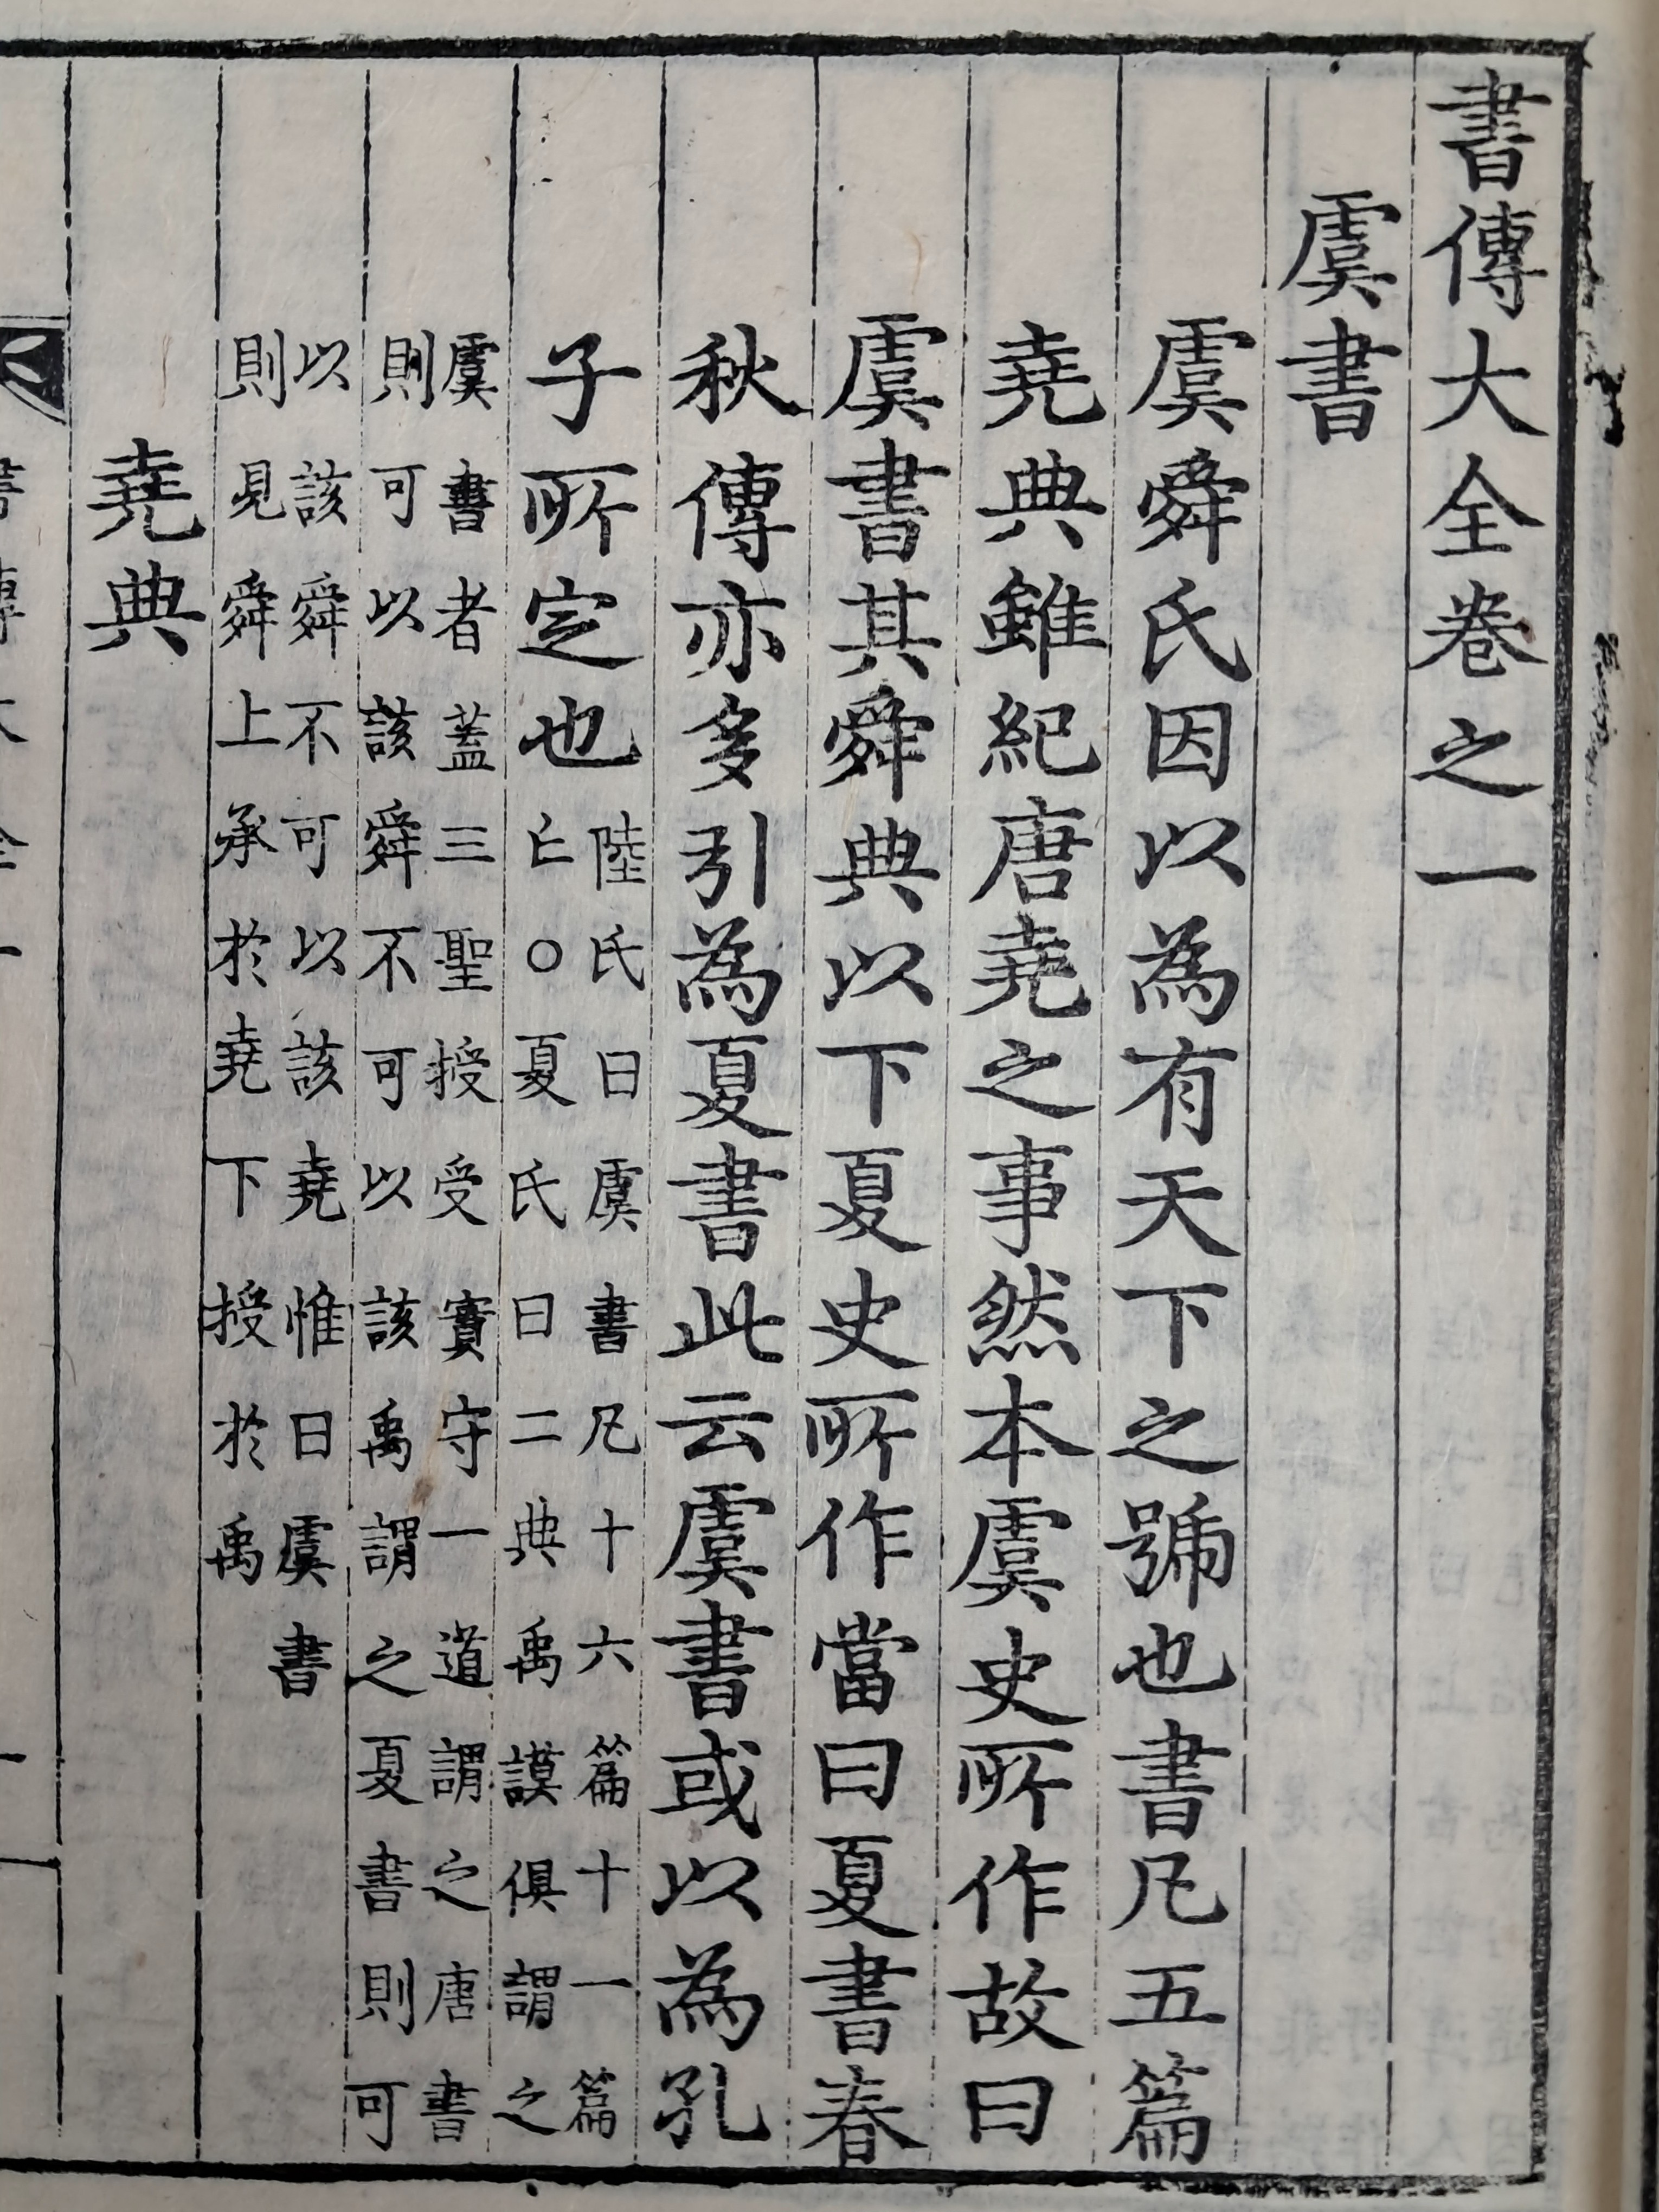 書傳大全卷之一
虞書
虞舜氏因以為有天下之號也書凡五篇
堯典雖紀唐堯之事然本虞史所作故曰
虞書其舜典以下夏史所作當曰夏書春
秋傳亦多引為夏書此云虞書或以為孔
子所定也
陸氏曰虞書凡十六篇十一篇
亡○夏氏曰二典禹謨俱謂之
虞書者蓋三聖授受實守一道謂之唐書
則可以該舜不可以該禹謂之夏書則可
以該舜不可以該堯惟曰虞書
則見舜上承於堯下授於禹
堯典